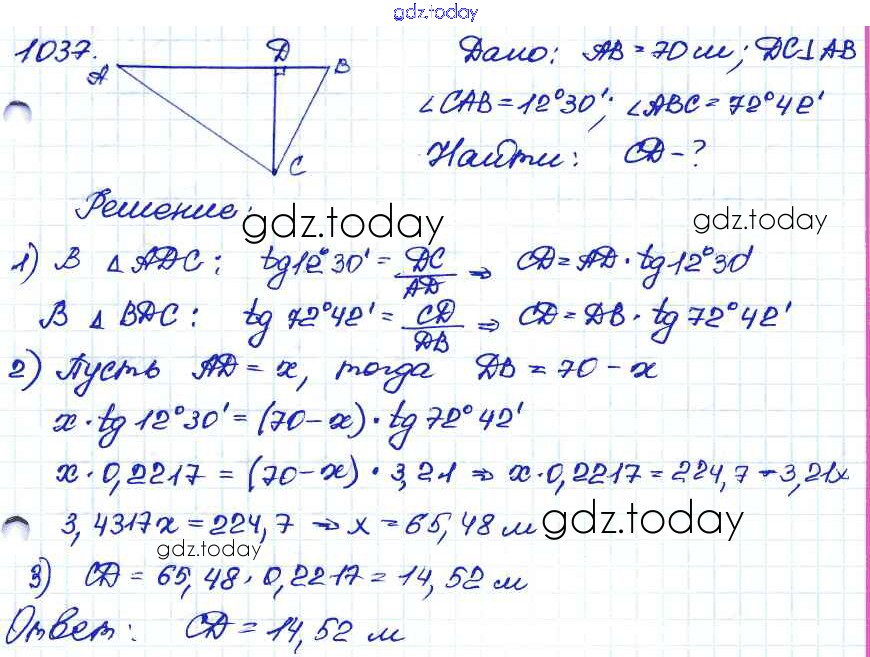 gdz.today
1037.
A D B C
Дано: AB = 70 м; DC⊥AB
∠CAB = 12°30'; ∠ABC = 72°42'
Найти: CD - ?
Решение:
gdz.today
gdz.today
1) В △ ADC: tg 12°30' = DC/AD ⇒ CD = AD · tg 12°30'
В △ BDC: tg 72°42' = CD/DB ⇒ CD = DB · tg 72°42'
2) Пусть AD = x, тогда DB = 70 - x
x · tg 12°30' = (70 - x) · tg 72°42'
x · 0,2217 = (70 - x) · 3,21 ⇒ x · 0,2217 = 224,7 - 3,21x
3,4317x = 224,7 ⇒ x = 65,48 м
gdz.today
gdz.today
3) CD = 65,48 · 0,2217 = 14,52 м
Ответ: CD = 14,52 м